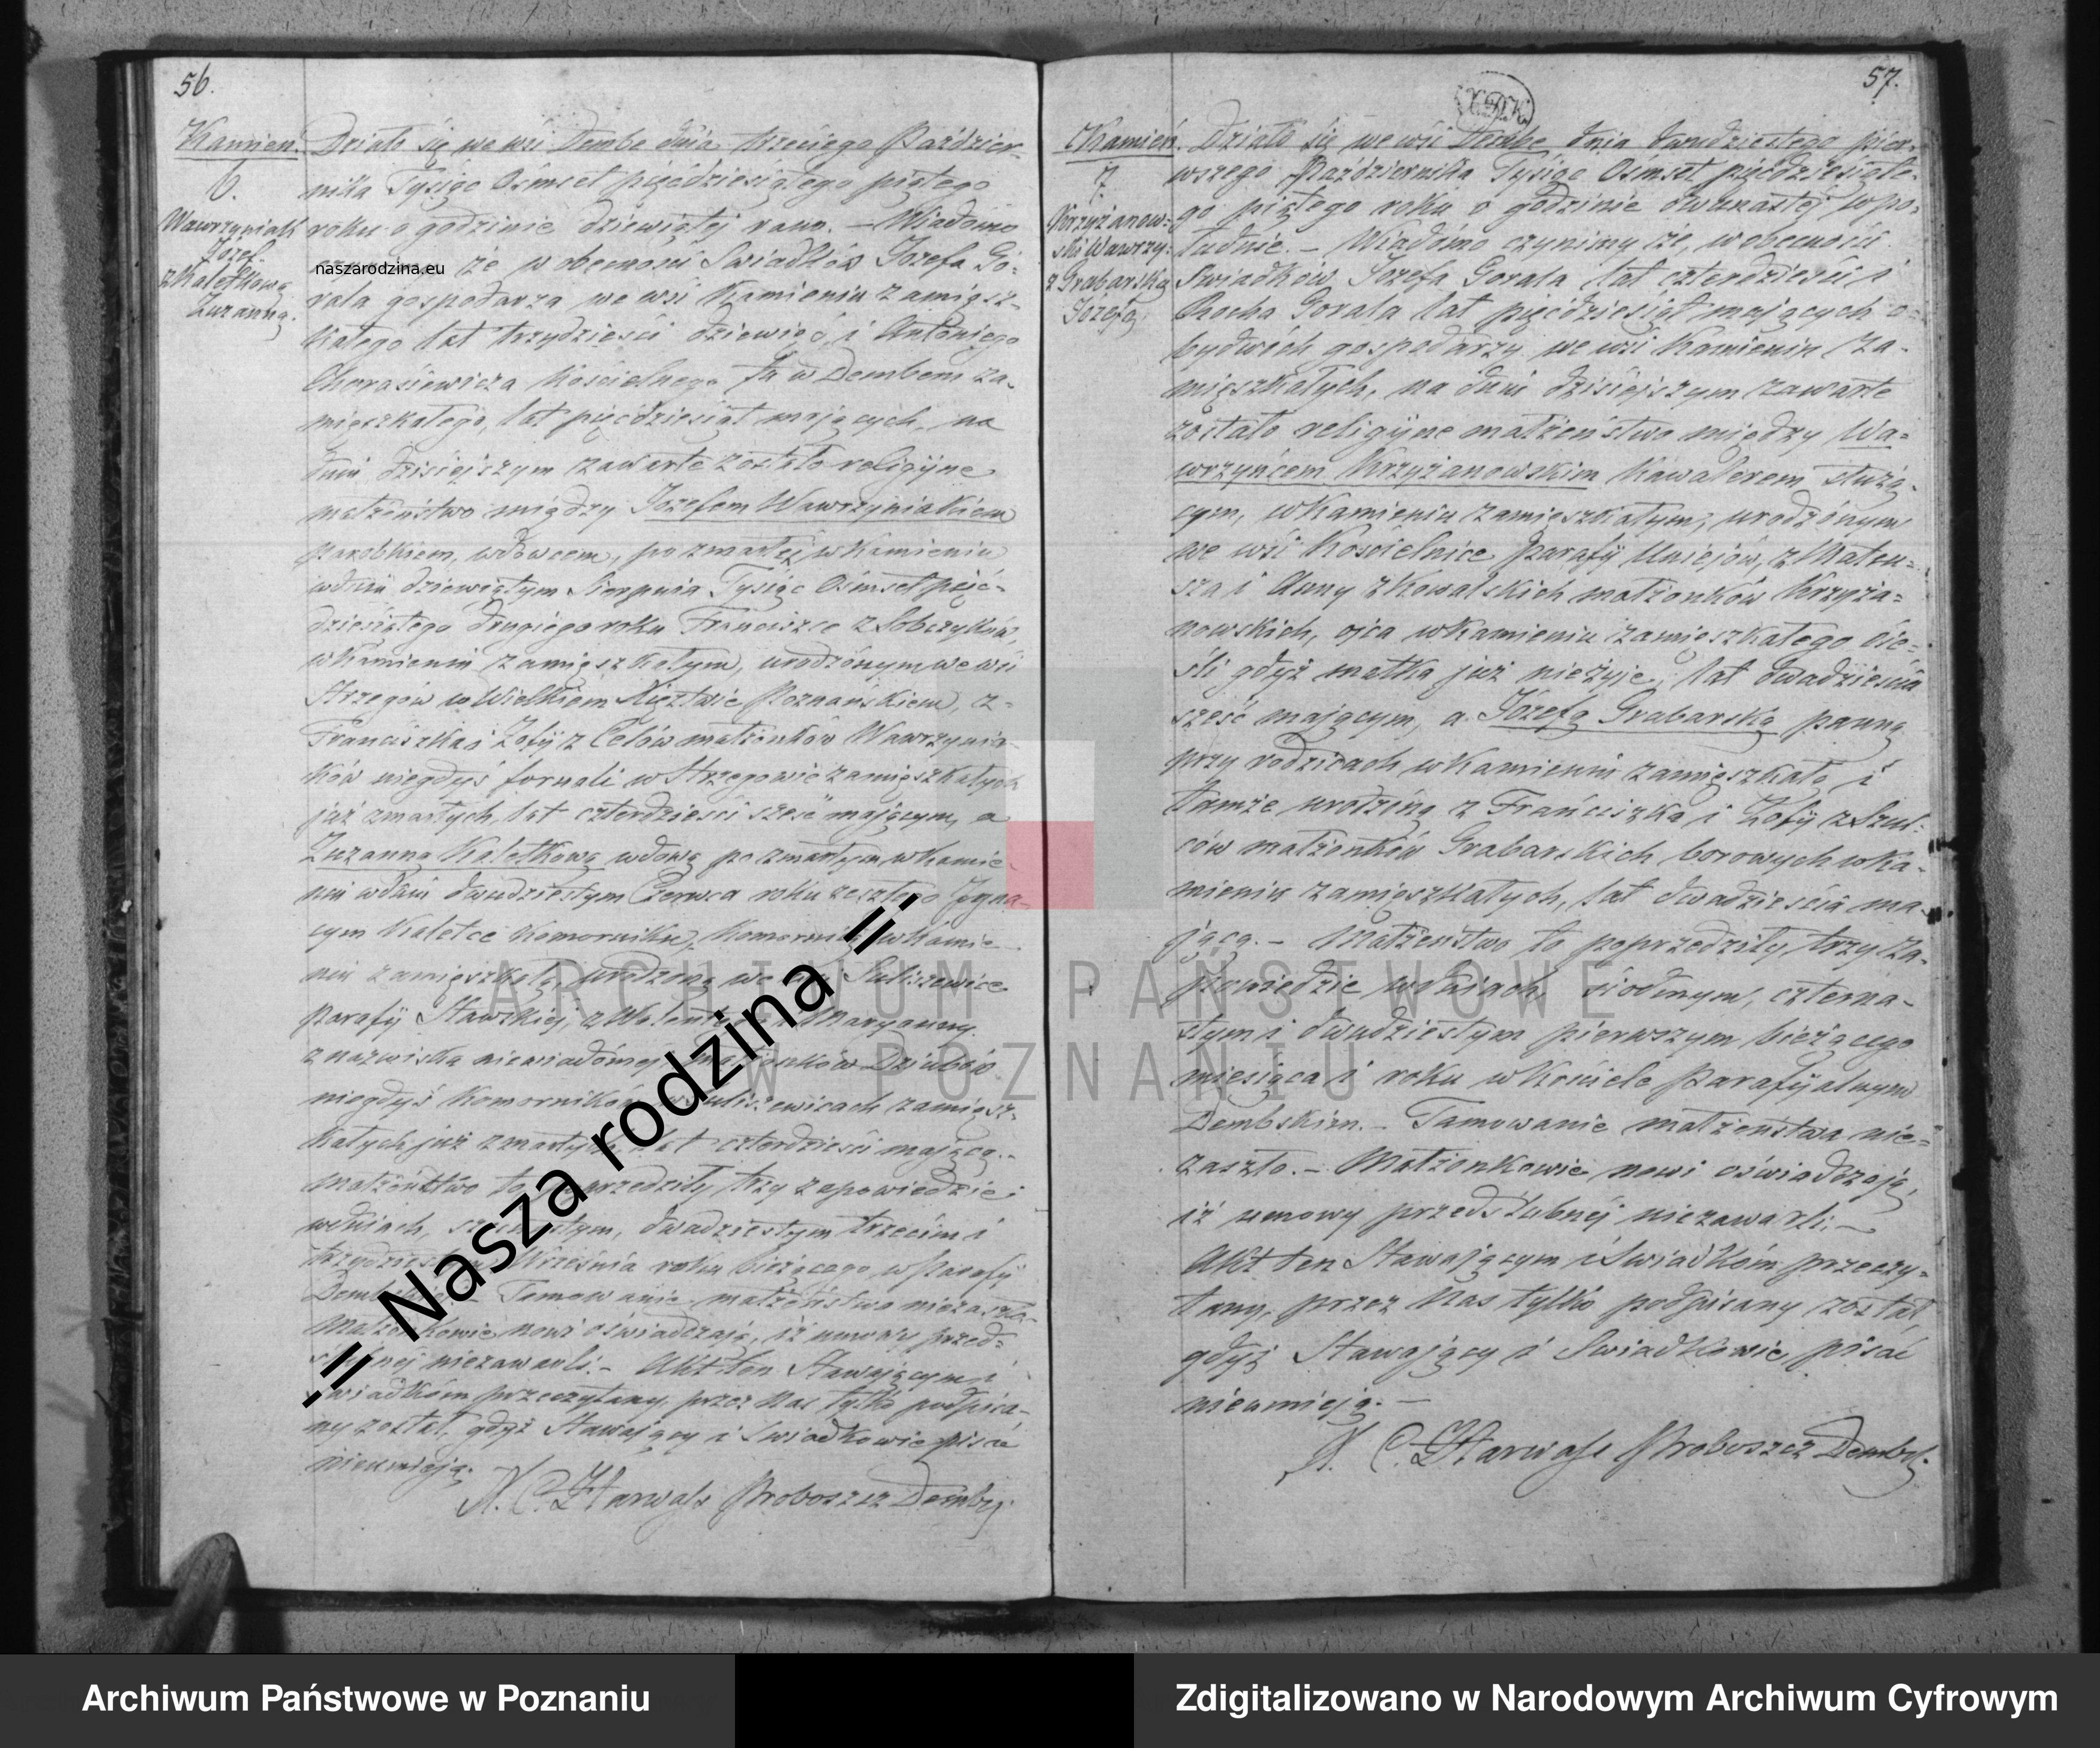 56.
Kamien.
6.
Wawrzyniak
Józef
z Kaletkową
Zuzanną.
Działo się we wsi Dembe dnia trzeciego Paździer-
nika Tysiąc Ośmset pięćdziesiątego piątego
roku o godzinie dziewiątej rano. — Wiadomo
że w obecności Swiadków Józefa Gó-
rala gospodarza we wsi Kamieniu zamięsz-
kałego lat trzydzieści dziewięć, i Antoniego
Chorasiewicza Kościelnego tu w Dembem za-
mięszkałego, lat pięćdziesiąt mających, na
dniu dzisiejszym zawarte zostało religijne
małżeństwo między Józefem Wawrzyniakiem
parobkiem, wdowcem, po zmarłej w Kamieniu
w dniu dziewiątym Sierpnia Tysiąc Ośmset pięć-
dziesiątego drugiego roku Franciszce z Sobczyków,
w Kamieniu zamięszkałym, urodzonym we wsi
Strzegów w Wielkiem Xięztwie Poznańskiem, z
Franciszka i Zofij z Celów małżonków Wawrzynia-
ków niegdyś fornali w Strzegowie zamięszkałych
już zmarłych, lat czterdzieści sześć mającym, a
Zuzanną Kaletkową wdową po zmarłym w Kamie-
niu w dniu dwudziestym Czerwca roku zeszłego Igna-
cym Kaletce Komorniku, Komornicą w Kamie-
niu zamięszkałą, urodzoną we wsi Suliszewice
parafij Stawskiej, z Maryanny
z nazwiska niewiadomej małżonków Dziubów
niegdyś Komorników w Suliszewicach zamięsz-
kałych już zmarłych, lat czterdzieści mającą.-
Małżeństwo to poprzedziły trzy zapowiedzie
w dniach, szesnastym, dwadziestym trzecim i
trzydziestym Września roku bieżącego w Parafij
Dembskiej.- Tamowanie małżeństwa niezaszło.
Małżonkowie nowi oświadczają, iż umowy przed-
ślubnej niezawarli.- Akt ten Stawającym i
Swiadkóm przeczytany, przez Nas tylko podpisa-
ny został, gdyż Stawający i Swiadkowie pisać
nieumieją.
Proboszcz Dembs.
57.
Kamień.
7.
Krzyżanow-
ski Wawrzy:
z Grabarską
Józefą
Działo się we wsi Dembe dnia dwudziestego pier-
wszego Października Tysiąc Ośmset pięćdziesiąte-
go piątego roku o godzinie dwunastej w po-
łudnie. — Wiadomo czynimy że, w obecności
Swiadków Józefa Gorala lat czterdzieści i
Rocha Gorala lat pięćdziesiąt mających o-
bydwóch gospodarzy we wsi Kamieniu za-
mięszkałych, na dniu dzisiejszym zawarte
zostało religijne małżeństwo między Wa-
wrzyńcem Krzyżanowskim Kawalerem służą-
cym, w Kamieniu zamięszkałym, urodzonym
we wsi Kościelnice parafij Uniejów, z Mateu-
sza i Anny z Kowalskich małżonków Krzyża-
nowskich, ojca w Kamieniu zamięszkałego cie-
śli gdyż matka już nieżyje, lat dwadzieścia
sześć mającym, a Józefą Grabarską panną
przy rodzicach w Kamieniu zamięszkałą i
tamże urodzoną z Franciszka i Zofij z Szul-
ców małżonków Grabarskich borowych w Ka-
mieniu zamięszkałych, lat dwadzieścia ma-
jącą.- Małżeństwo to poprzedziły trzy za-
powiedzie w dniach, siódmym, czterna-
stym i dwudziestym pierwszym bieżącego
miesiąca i roku w Kościele Parafijalnym
Dembskim.- Tamowanie małżeństwa nie-
zaszło.- Małżonkowie nowi oświadczają,
iż umowy przedślubnej niezawarli.-
Akt ten Stawającym i Swiadkóm przeczy-
tany, przez Nas tylko podpisany został,
gdyż Stawający i Swiadkowie pisać
nieumieją. —
Proboszcz Dembs.
naszarodzina.eu
.:= Nasza rodzina =:.
ARCHIWUM PAŃSTWOWE
W POZNANIU
Archiwum Państwowe w Poznaniu
Zdigitalizowano w Narodowym Archiwum Cyfrowym